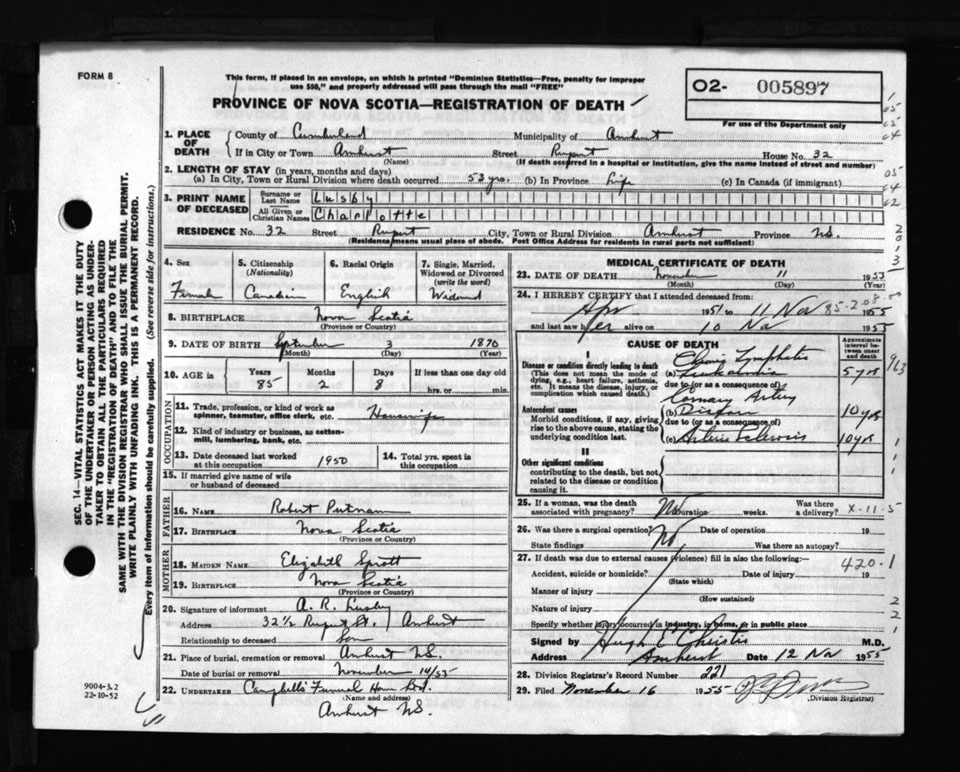 FORM 8
This form, if placed in an envelope, on which is printed "Dominion Statistics—Free, penalty for improper
use $50," and properly addressed will pass through the mail "FREE"
PROVINCE OF NOVA SCOTIA—REGISTRATION OF DEATH
O2- 005897
For use of the Department only
1. PLACE OF DEATH
County of Cumberland Municipality of Amherst
If in City or Town Amherst Street Rupert House No. 32
(Name) (If death occurred in a hospital or institution, give the name instead of street and number)
2. LENGTH OF STAY (in years, months and days)
(a) In City, Town or Rural Division where death occurred 53 yrs. (b) In Province Life (c) In Canada (if immigrant)
3. PRINT NAME OF DECEASED
Surname or Last Name Lusby
All Given or Christian Names Charlotte
RESIDENCE No. 32 Street Rupert City, Town or Rural Division Amherst Province N.S.
(Residence means usual place of abode. Post Office Address for residents in rural parts not sufficient)
4. Sex
Female
5. Citizenship (Nationality)
Canadian
6. Racial Origin
English
7. Single, Married, Widowed or Divorced (write the word)
Widowed
8. BIRTHPLACE Nova Scotia
(Province or Country)
9. DATE OF BIRTH September 3 1870
(Month) (Day) (Year)
10. AGE in
Years Months Days If less than one day
85 2 8 hrs. or min.
OCCUPATION
11. Trade, profession, or kind of work as spinner, teamster, office clerk, etc. Housewife
12. Kind of industry or business, as cotton-mill, lumbering, bank, etc.
13. Date deceased last worked at this occupation 1950
14. Total yrs. spent in this occupation
15. If married give name of wife or husband of deceased
FATHER
16. Name Robert Putnam
17. Birthplace Nova Scotia
(Province or Country)
MOTHER
18. MAIDEN NAME Elizabeth Sprott
19. BIRTHPLACE Nova Scotia
(Province or Country)
20. Signature of informant A. R. Lusby
Address 32 1/2 Rupert St. Amherst
Relationship to deceased Son
21. Place of burial, cremation or removal Amherst N.S.
Date of burial or removal November 14/55
22. UNDERTAKER Campbell's Funeral Home
(Name and address)
Amherst N.S.
MEDICAL CERTIFICATE OF DEATH
23. DATE OF DEATH November 11 1955
(Month) (Day) (Year)
24. I HEREBY CERTIFY that I attended deceased from
Apr 1951 to 11 Nov 1955
and last saw her alive on 10 Nov 1955
CAUSE OF DEATH
Approximate interval between onset and death
I
Disease or condition directly leading to death
(This does not mean the mode of dying, e.g., heart failure, asthenia, etc. It means the disease, injury, or complication which caused death.)
(a) Chronic Lymphatic Leukaemia 5 yrs
due to (or as a consequence of)
Antecedent causes
Morbid conditions, if any, giving rise to the above cause, stating the underlying condition last.
Coronary Artery
(b) Disease 10 yrs
due to (or as a consequence of)
(c) Arterio Sclerosis 10 yrs
II
Other significant conditions
contributing to the death, but not related to the disease or condition causing it.
25. If a woman, was the death associated with pregnancy? No Duration weeks. Was there a delivery?
X-11-5
26. Was there a surgical operation? No Date of operation 19
State findings Was there an autopsy?
27. If death was due to external causes (violence) fill in also the following:—
420-1
Accident, suicide or homicide? Date of injury 19
(State which)
Manner of injury
(How sustained)
Nature of injury
Specify whether injury occurred in industry, in home, or in public place
Signed by Hugh E Christie M.D.
Address Amherst Date 12 Nov 1955
28. Division Registrar's Record Number 221
29. Filed November 16 1955
(Division Registrar)
SEC. 14—VITAL STATISTICS ACT MAKES IT THE DUTY
OF THE UNDERTAKER OR PERSON ACTING AS UNDER-
TAKER TO OBTAIN ALL THE PARTICULARS REQUIRED
IN THE "REGISTRATION OF DEATH" AND TO FILE THE
SAME WITH THE DIVISION REGISTRAR WHO SHALL ISSUE THE BURIAL PERMIT.
WRITE PLAINLY WITH UNFADING INK. THIS IS A PERMANENT RECORD.
Every item of information should be carefully supplied. (See reverse side for instructions.)
9004-3.2
22-10-52